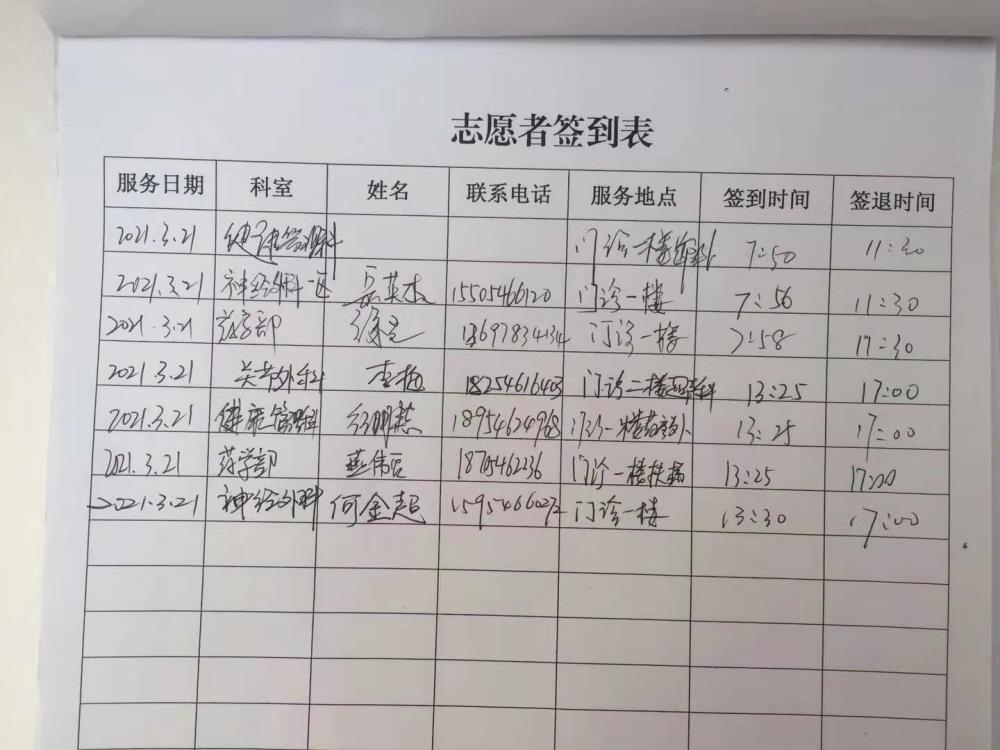 志愿者签到表
服务日期 科室 姓名 联系电话 服务地点 签到时间 签退时间
2021.3.21 健康管理科 门诊一楼 7:50 11:30
2021.3.21 神经外科一区 英杰 15505466120 门诊一楼 7:56 11:30
2021.3.21 药学部 徐 13697834134 门诊一楼 7:58 17:30
2021.3.21 关节外科 李梅 18254616403 门诊二楼 13:25 17:00
2021.3.21 健康管理科 18954624968 门诊一楼 13:25 17:00
2021.3.21 药学部 燕伟 18705462236 门诊一楼扶梯 13:25 17:00
2021.3.21 神经外科 何金超 门诊一楼 13:30 17:00